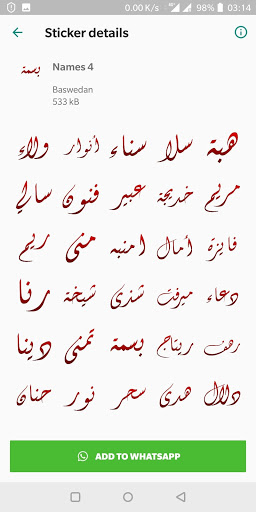 0.00 K/s 4G 98% 03:14
Sticker details
بسمة
Names 4
Baswedan
533 kB
هبة سلا سناء أنوار ولاء
مريم خديجة عبير فنون سالي
فائزة أمال امنيه منى ريم
دعاء ميرفت شذى شيخة رنا
رهف ريتاج بسمة تمنى دينا
دلال هدى سحر نور حنان
ADD TO WHATSAPP